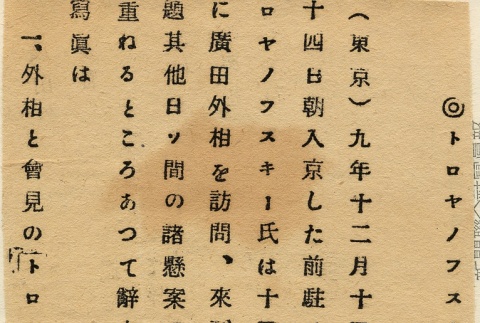 ◎トロヤノフス
(東京)九年十二月十
十四日朝入京した前駐
ロヤノフスキー氏は十
に廣田外相を訪問、來
題其他日ソ間の諸懸案
重ねるところあつて辭
寫眞は
一、外相と會見のトロ